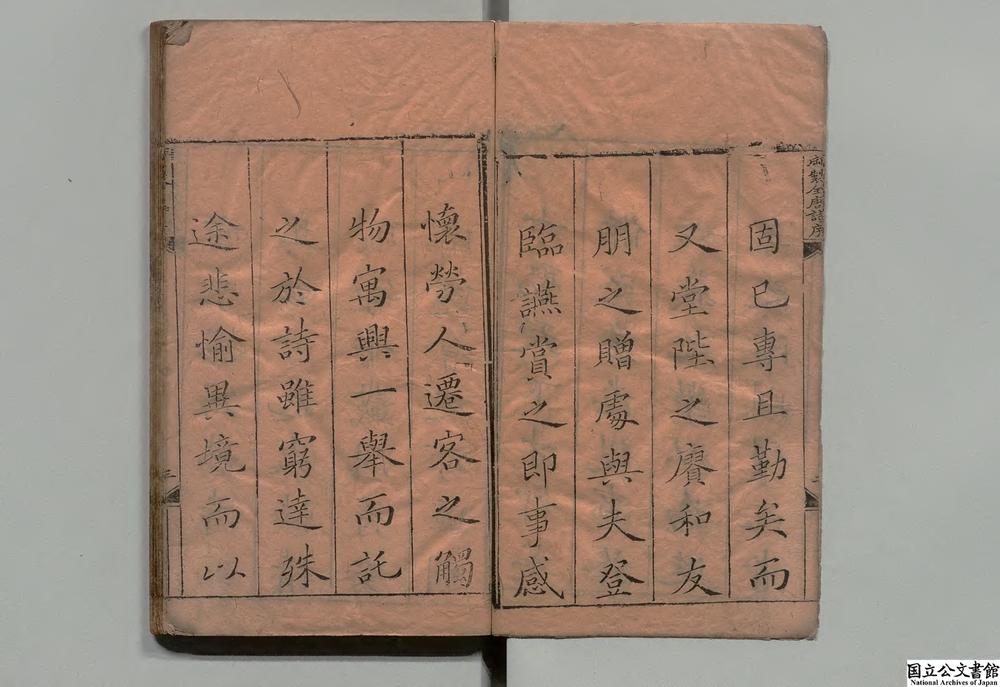 御製全唐詩序
固已專且勤矣而
又堂陛之賡和友
朋之贈處與夫登
臨讌賞之即事感
懷勞人遷客之觸
物寓興一舉而託
之於詩雖窮達殊
途悲愉異境而以
国立公文書館
National Archives of Japan